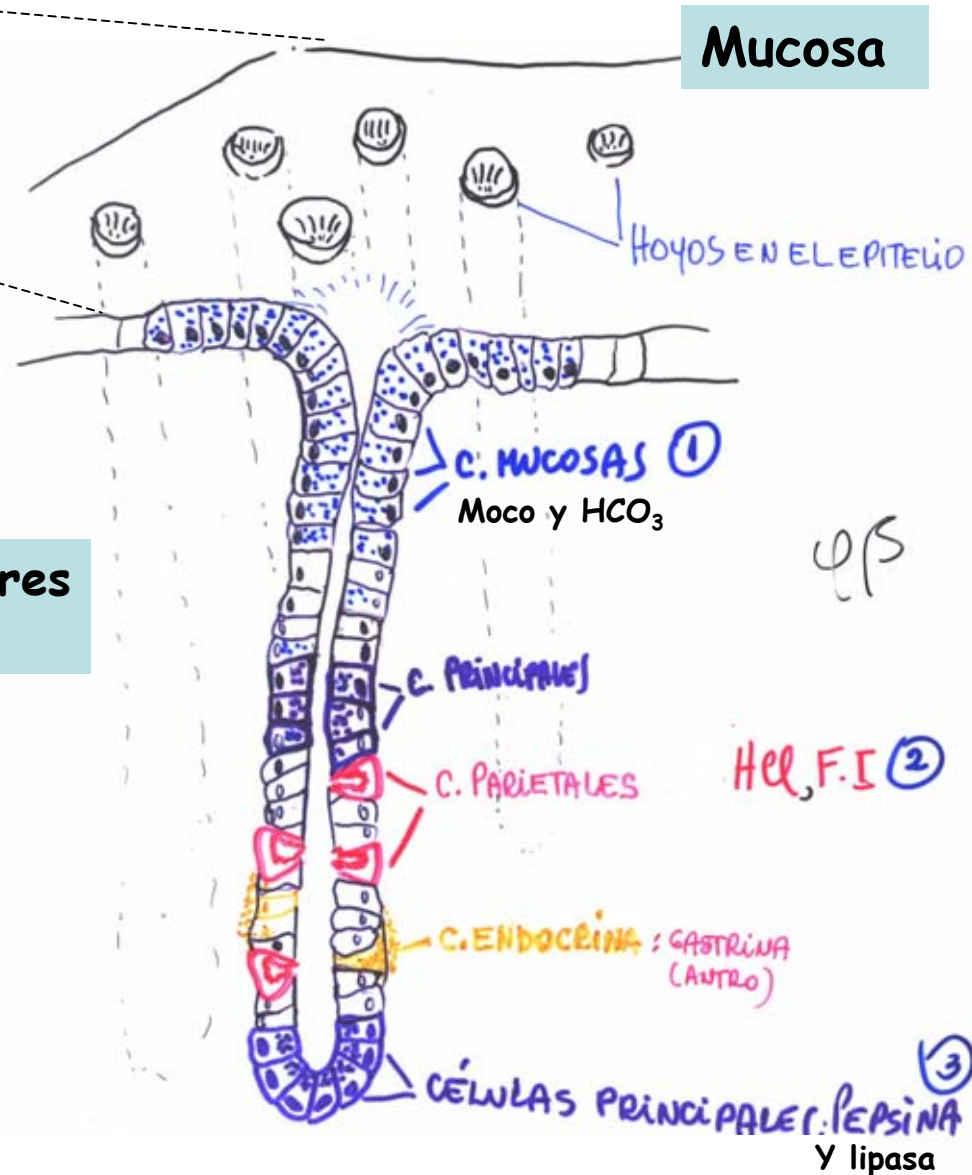 Mucosa
HOYOS EN EL EPITELIO
C. MUCOSAS 1
Moco y HCO₃
res
C. PRINCIPALES
C. PARIETALES
HCl, F.I 2
C. ENDOCRINA : GASTRINA
(ANTRO)
3
CÉLULAS PRINCIPALES: PEPSINA
Y lipasa